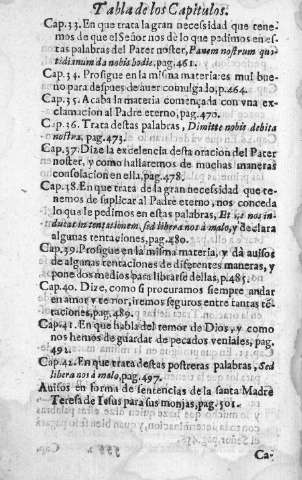 Tabla de los Capitulos.
Cap.33. En que trata la gran necessidad que tene-
mos de que el Señor nos dè lo que pedimos en es-
tas palabras del Pater noster, Panem nostrum quo-
tidianum da nobis hodie. pag. 461.
Cap. 34. Prosigue en la misma materia: es muy bue-
no para despues de auer comulgado, p.464.
Cap. 35. Acaba la materia començada con vna ex-
clamacion al Padre eterno, pag. 470.
Cap. 36. Trata destas palabras, Dimitte nobis debita
nostra, pag. 473.
Cap. 37. Dize la excelencia desta oracion del Pater
noster, y como hallaremos de muchas maneras
consolacion en ella, pag. 478,
Cap. 38. En que trata de la gran necessidad que te-
nemos de suplicar al Padre eterno, nos conceda
lo que le pedimos en estas palabras, Et ne nos in-
ducas in tentationem, sed libera nos à malo, y declara
algunas tentaciones, pag. 480.
Cap. 39. Prosigue en la misma materia, y dà auisos
de algunas tentaciones de diferentes maneras, y
pone dos medios para librarse dellas, p. 485.
Cap. 40. Dize, como si procuramos siempre andar
en amor y temor, iremos seguros entre tantas tē-
taciones, pag. 489.
Cap. 41. En que habla del temor de Dios, y como
nos hemos de guardar de pecados veniales, pag.
492.
Cap. 42. En que trata destas postreras palabras, Sed
libera nos à malo, pag. 497.
Auisos en forma de sentencias de la santa Madre
Teresa de Iesus para sus monjas, pag. 501.
Ca-